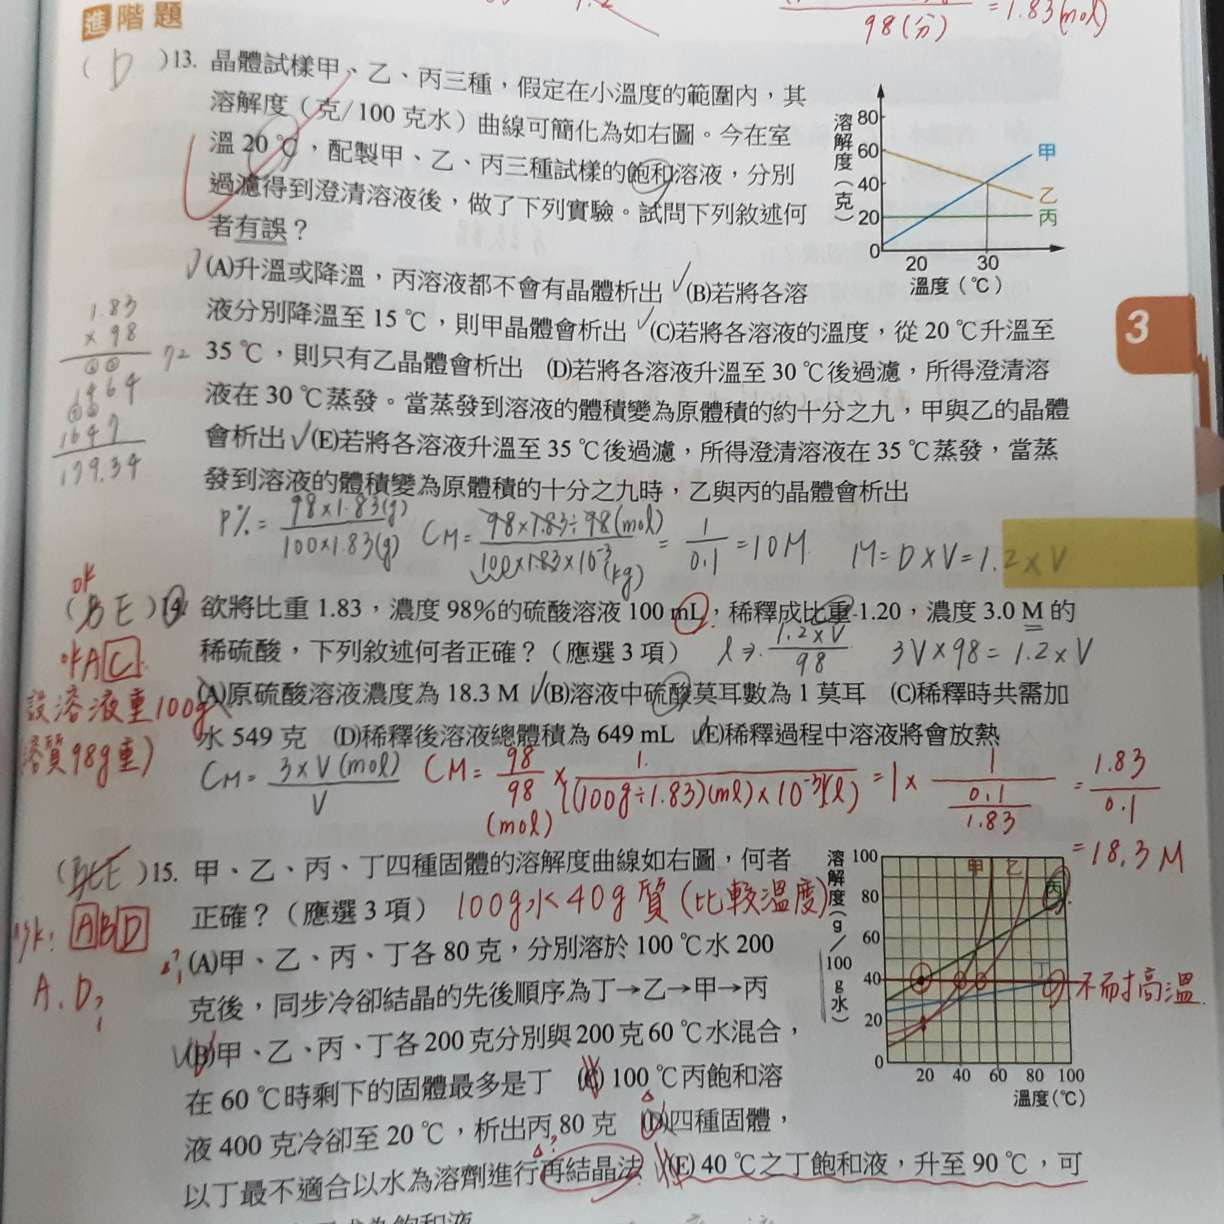 進階題
98(分)
=1.83(mol)
( D )13. 晶體試樣甲、乙、丙三種，假定在小溫度的範圍內，其
溶解度（克/100 克水）曲線可簡化為如右圖。今在室
溫 20 ℃，配製甲、乙、丙三種試樣的飽和溶液，分別
過濾得到澄清溶液後，做了下列實驗。試問下列敘述何
者有誤？
溶解度（克）
80
60
40
20
0
甲
乙
丙
20 30
溫度（℃）
(A)升溫或降溫，丙溶液都不會有晶體析出 (B)若將各溶
液分別降溫至 15 ℃，則甲晶體會析出 (C)若將各溶液的溫度，從 20 ℃升溫至
35 ℃，則只有乙晶體會析出 (D)若將各溶液升溫至 30 ℃後過濾，所得澄清溶
液在 30 ℃蒸發。當蒸發到溶液的體積變為原體積的約十分之九，甲與乙的晶體
會析出 (E)若將各溶液升溫至 35 ℃後過濾，所得澄清溶液在 35 ℃蒸發，當蒸
發到溶液的體積變為原體積的十分之九時，乙與丙的晶體會析出
1.83
× 98
1464
1647
179.34
3
P%= 98×1.83(g)
100×1.83(g)
CM= 98×1.83÷98(mol)
100×1.83×10⁻³(kg)
= 1
0.1
=10M
M=D×V=1.2×V
ok
( BE )14. 欲將比重 1.83，濃度 98%的硫酸溶液 100 mL，稀釋成比重 1.20，濃度 3.0 M 的
稀硫酸，下列敘述何者正確？（應選 3 項）
1.2×V
98
3V×98=1.2×V
ok A C
設溶液重100g
(溶質98g重)
(A)原硫酸溶液濃度為 18.3 M (B)溶液中硫酸莫耳數為 1 莫耳 (C)稀釋時共需加
水 549 克 (D)稀釋後溶液總體積為 649 mL (E)稀釋過程中溶液將會放熱
CM= 3×V(mol)
V
CM= 98
98
(mol)
× 1
(100g÷1.83)(ml)×10⁻³(l)
=1× 1
0.1
1.83
= 1.83
0.1
=18.3M
( BCE )15. 甲、乙、丙、丁四種固體的溶解度曲線如右圖，何者
正確？（應選 3 項）
100g水40g質(比較溫度)
ABD
A.D?
(A)甲、乙、丙、丁各 80 克，分別溶於 100 ℃水 200
克後，同步冷卻結晶的先後順序為丁→乙→甲→丙
(B)甲、乙、丙、丁各 200 克分別與 200 克 60 ℃水混合，
在 60 ℃時剩下的固體最多是丁 (C) 100 ℃丙飽和溶
液 400 克冷卻至 20 ℃，析出丙 80 克 (D)四種固體，
以丁最不適合以水為溶劑進行再結晶法 (E) 40 ℃之丁飽和液，升至 90 ℃，可
溶解度（g/100g水）
100
80
60
40
20
0
甲
乙
丙
丁
不耐高溫
20 40 60 80 100
溫度(℃)